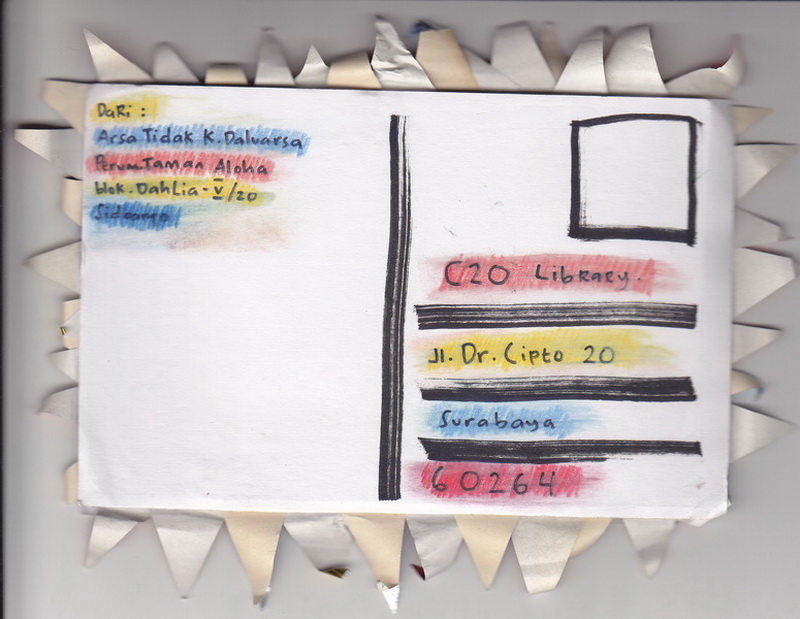 DaRi :
Arsa Tidak K. Daluarsa
Perum.Taman Aloha
blok.DahLia-V/20
Sidoarjo
C20 LibRaRy.
Jl. Dr. Cipto 20
Surabaya
60264